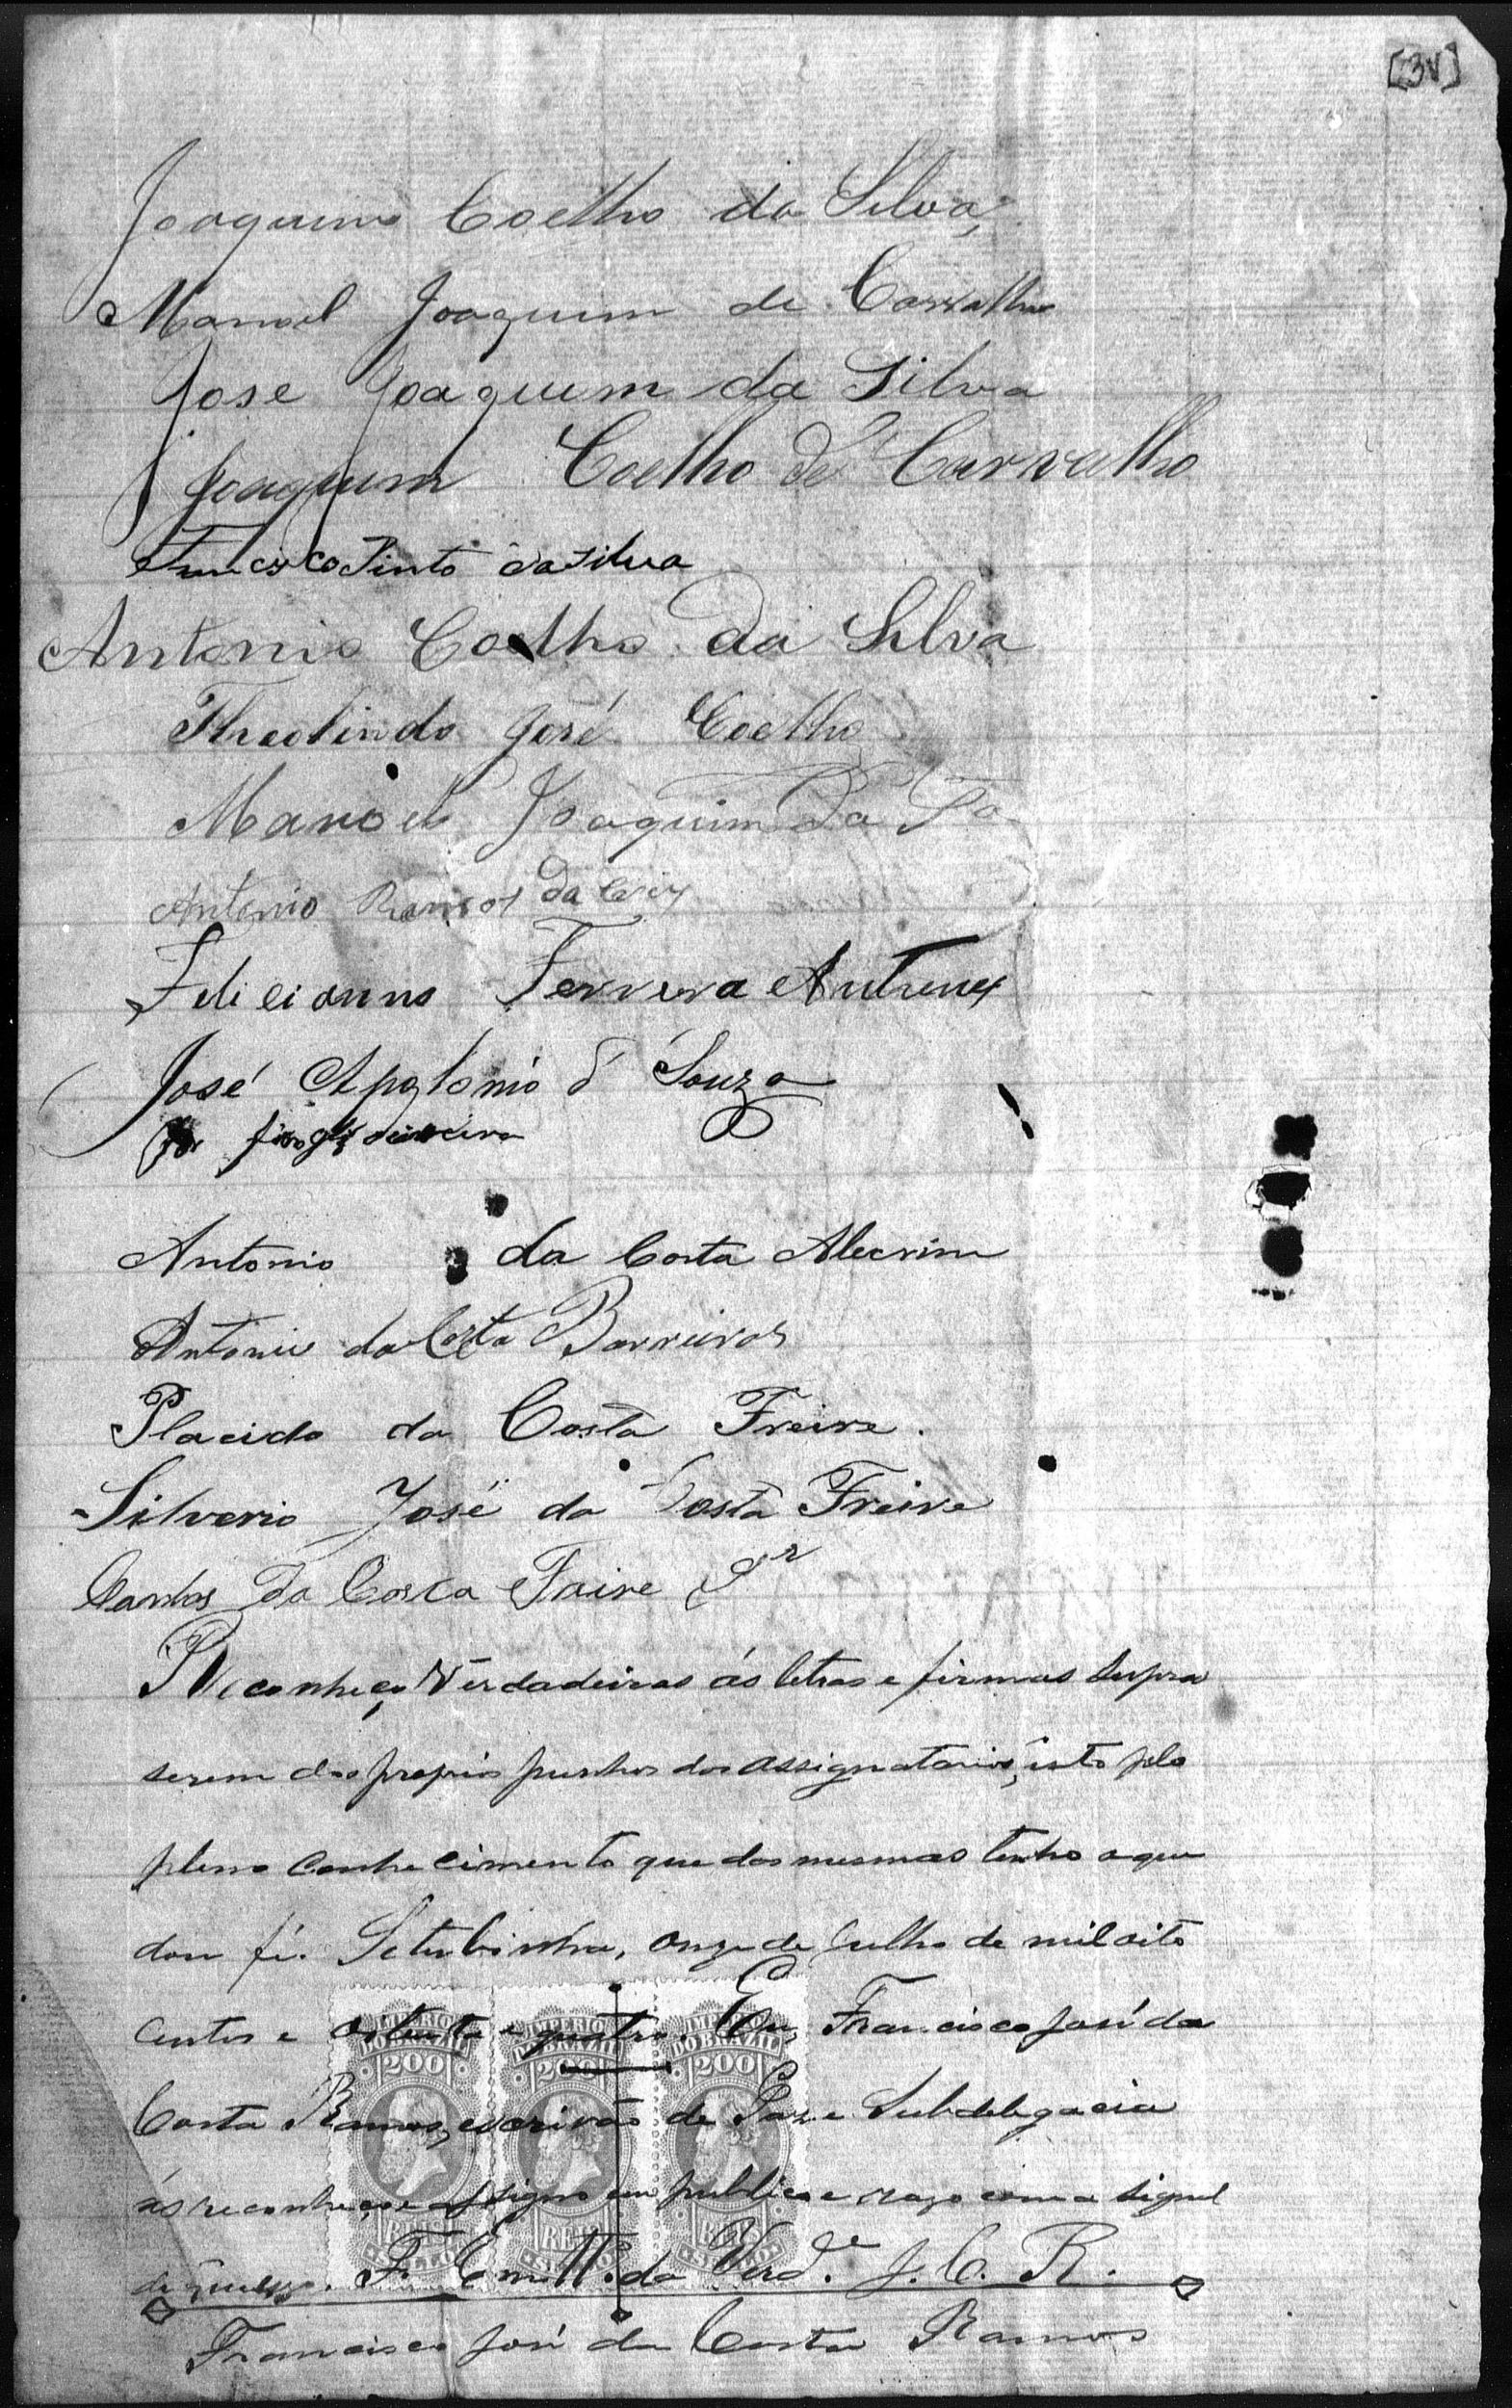 [3V]
Joaquim Coelho da Silva,
Manoel Joaquim de Carvalho
Jose Joaquim da Silva
Joaquim Coelho de Carvalho
Francisco Pinto da Silva
Antonio Coelho da Silva
Theolindo José Coelho
Manoel Joaquim Da
Antonio Ramos da Cruz
Felicianno Ferreira Antunes
José Apolonio d' Souza
Antonio da Costa Alecrim
Antonio da Costa Barreiros
Placido da Costa Freire.
Silverio José da Costa Freire
Carlos da Costa Freire
Reconheço Verdadeiras ás letras e firmas supra
serem dos proprios punhos dos assignatarios, isto pelo
pleno conhecimento que das mesmas tenho o que
dou fé. Setubinha, onze de Julho de mil oito
centos e oitenta e quatro. Eu, Francisco José da
Costa Ramos, escrivão de Paz e Subdelegacia
ás reconheço e assigno em publico e razo com o signal
de que uso. F. Em tto. da Verd.e J. C. R.
Francisco José da Costa Ramos
IMPERIO DO BRAZIL 200 REIS SELLO
IMPERIO DO BRAZIL 200 REIS SELLO
IMPERIO DO BRAZIL 200 REIS SELLO